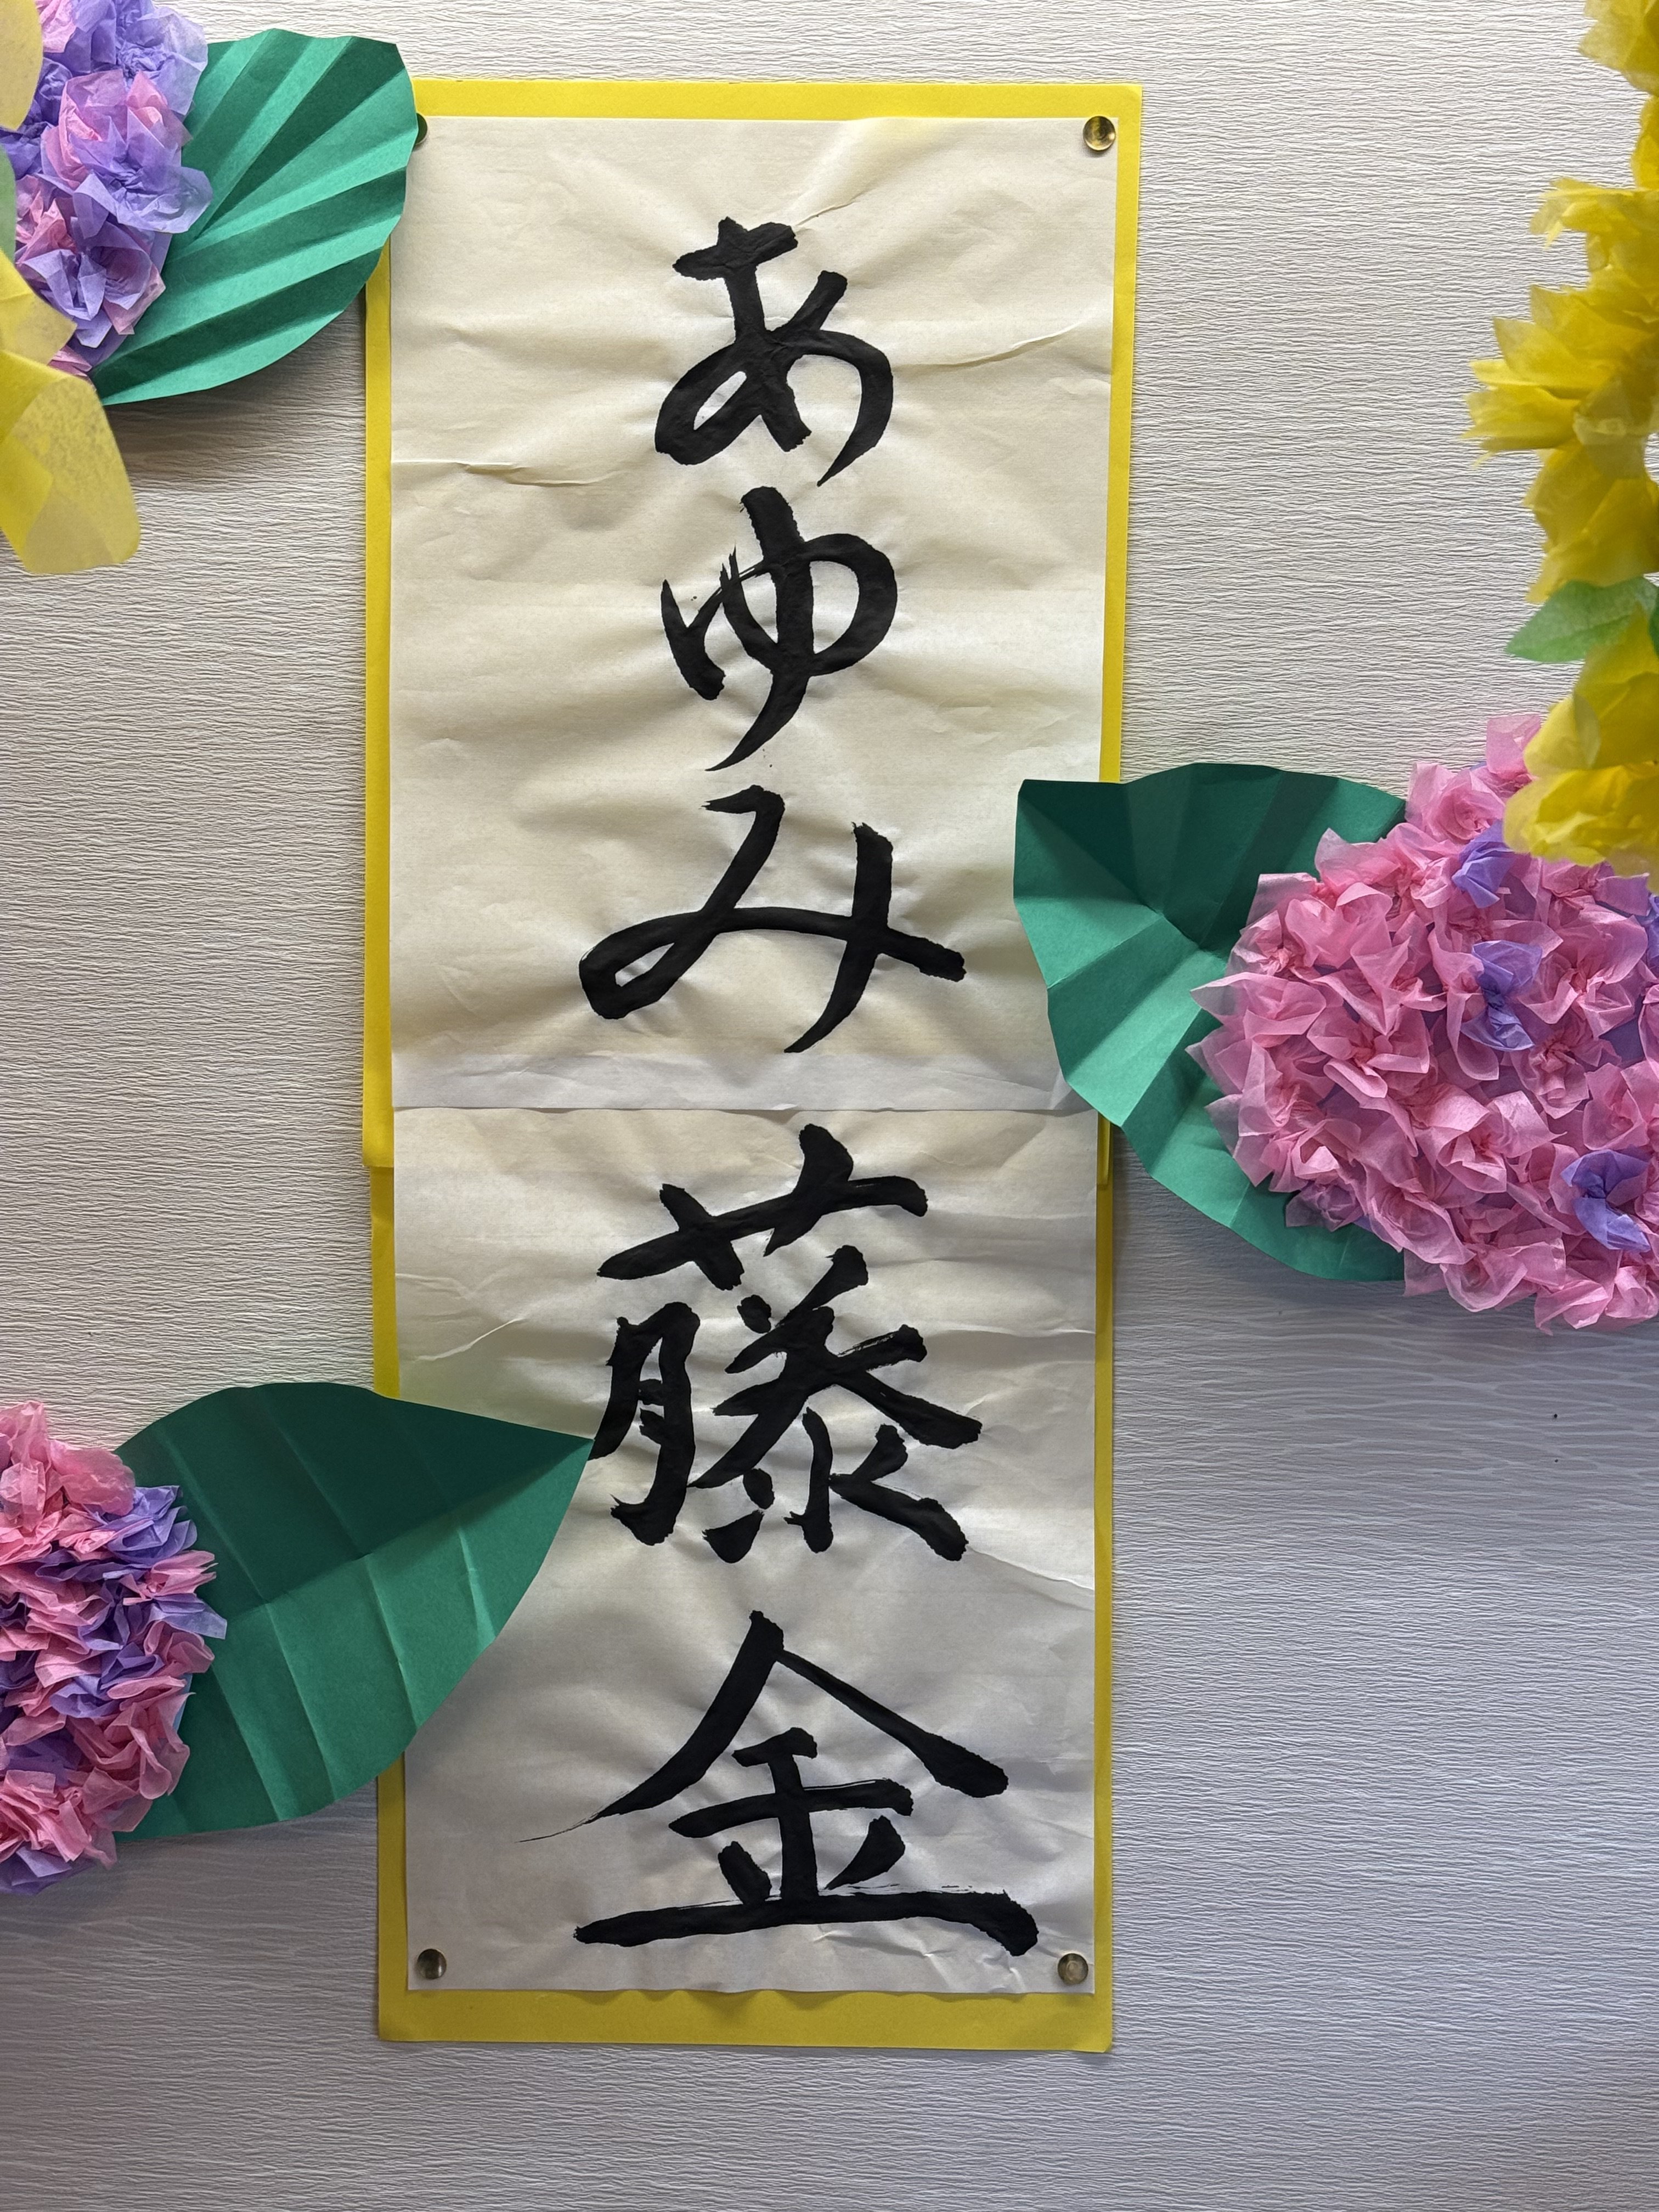 あゆみ藤金